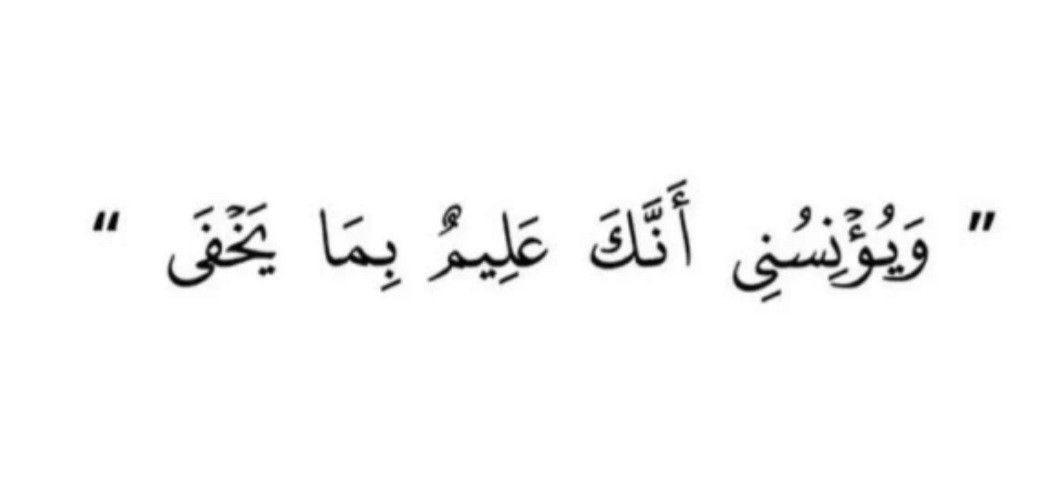 " وَيُؤْنِسُنِي أَنَّكَ عَلِيمٌ بِمَا يَخْفَى "